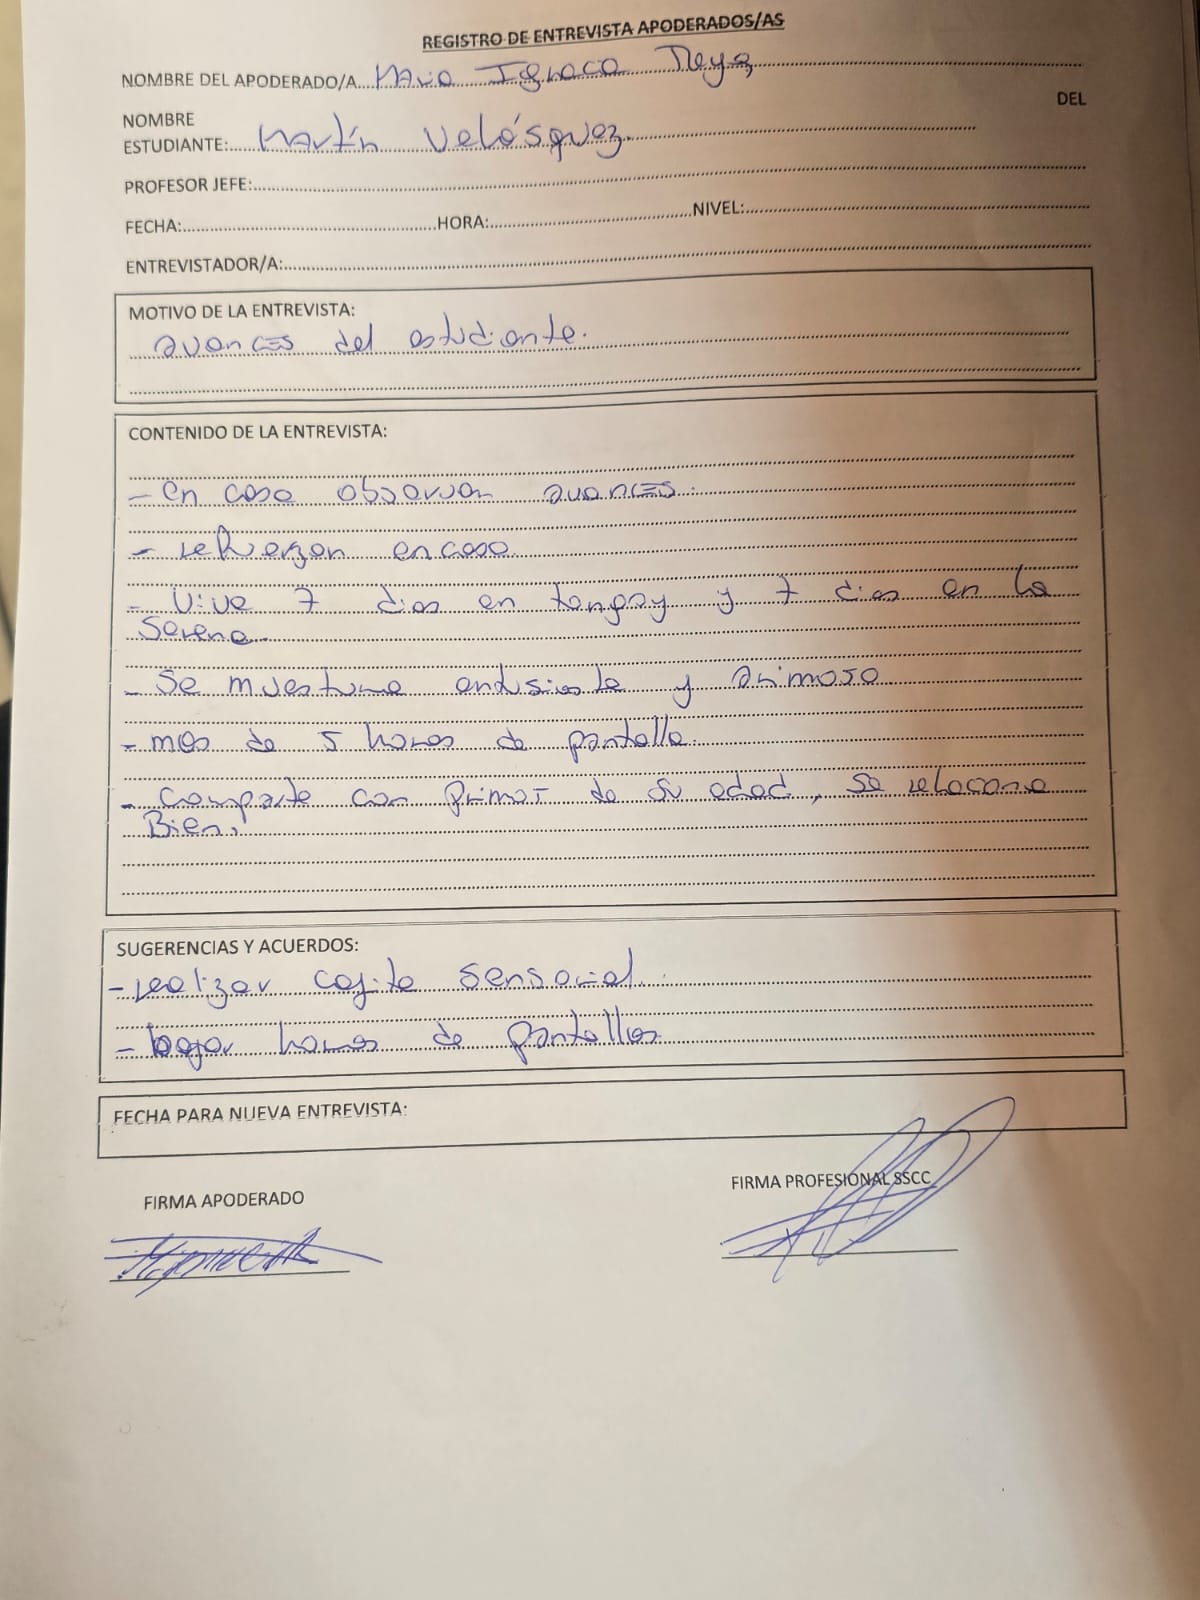 REGISTRO DE ENTREVISTA APODERADOS/AS
NOMBRE DEL APODERADO/A....
NOMBRE DEL
ESTUDIANTE:..... Martín Velásquez.
PROFESOR JEFE:
FECHA: HORA: NIVEL:
ENTREVISTADOR/A:
MOTIVO DE LA ENTREVISTA:
avances del estudiante.
CONTENIDO DE LA ENTREVISTA:
- en casa observan avances.
- refuerzan en casa
- Vive 7 dias en tongoy y 7 dias en la
Serena.
- Se muestra entusiasta y animoso
- mas de 5 horas de pantalla.
- Comparte con primos de su edad, se relaciona
Bien.
SUGERENCIAS Y ACUERDOS:
- realizar cajita sensorial.
- bajar horas de pantallas.
FECHA PARA NUEVA ENTREVISTA:
FIRMA APODERADO
FIRMA PROFESIONAL SSCC